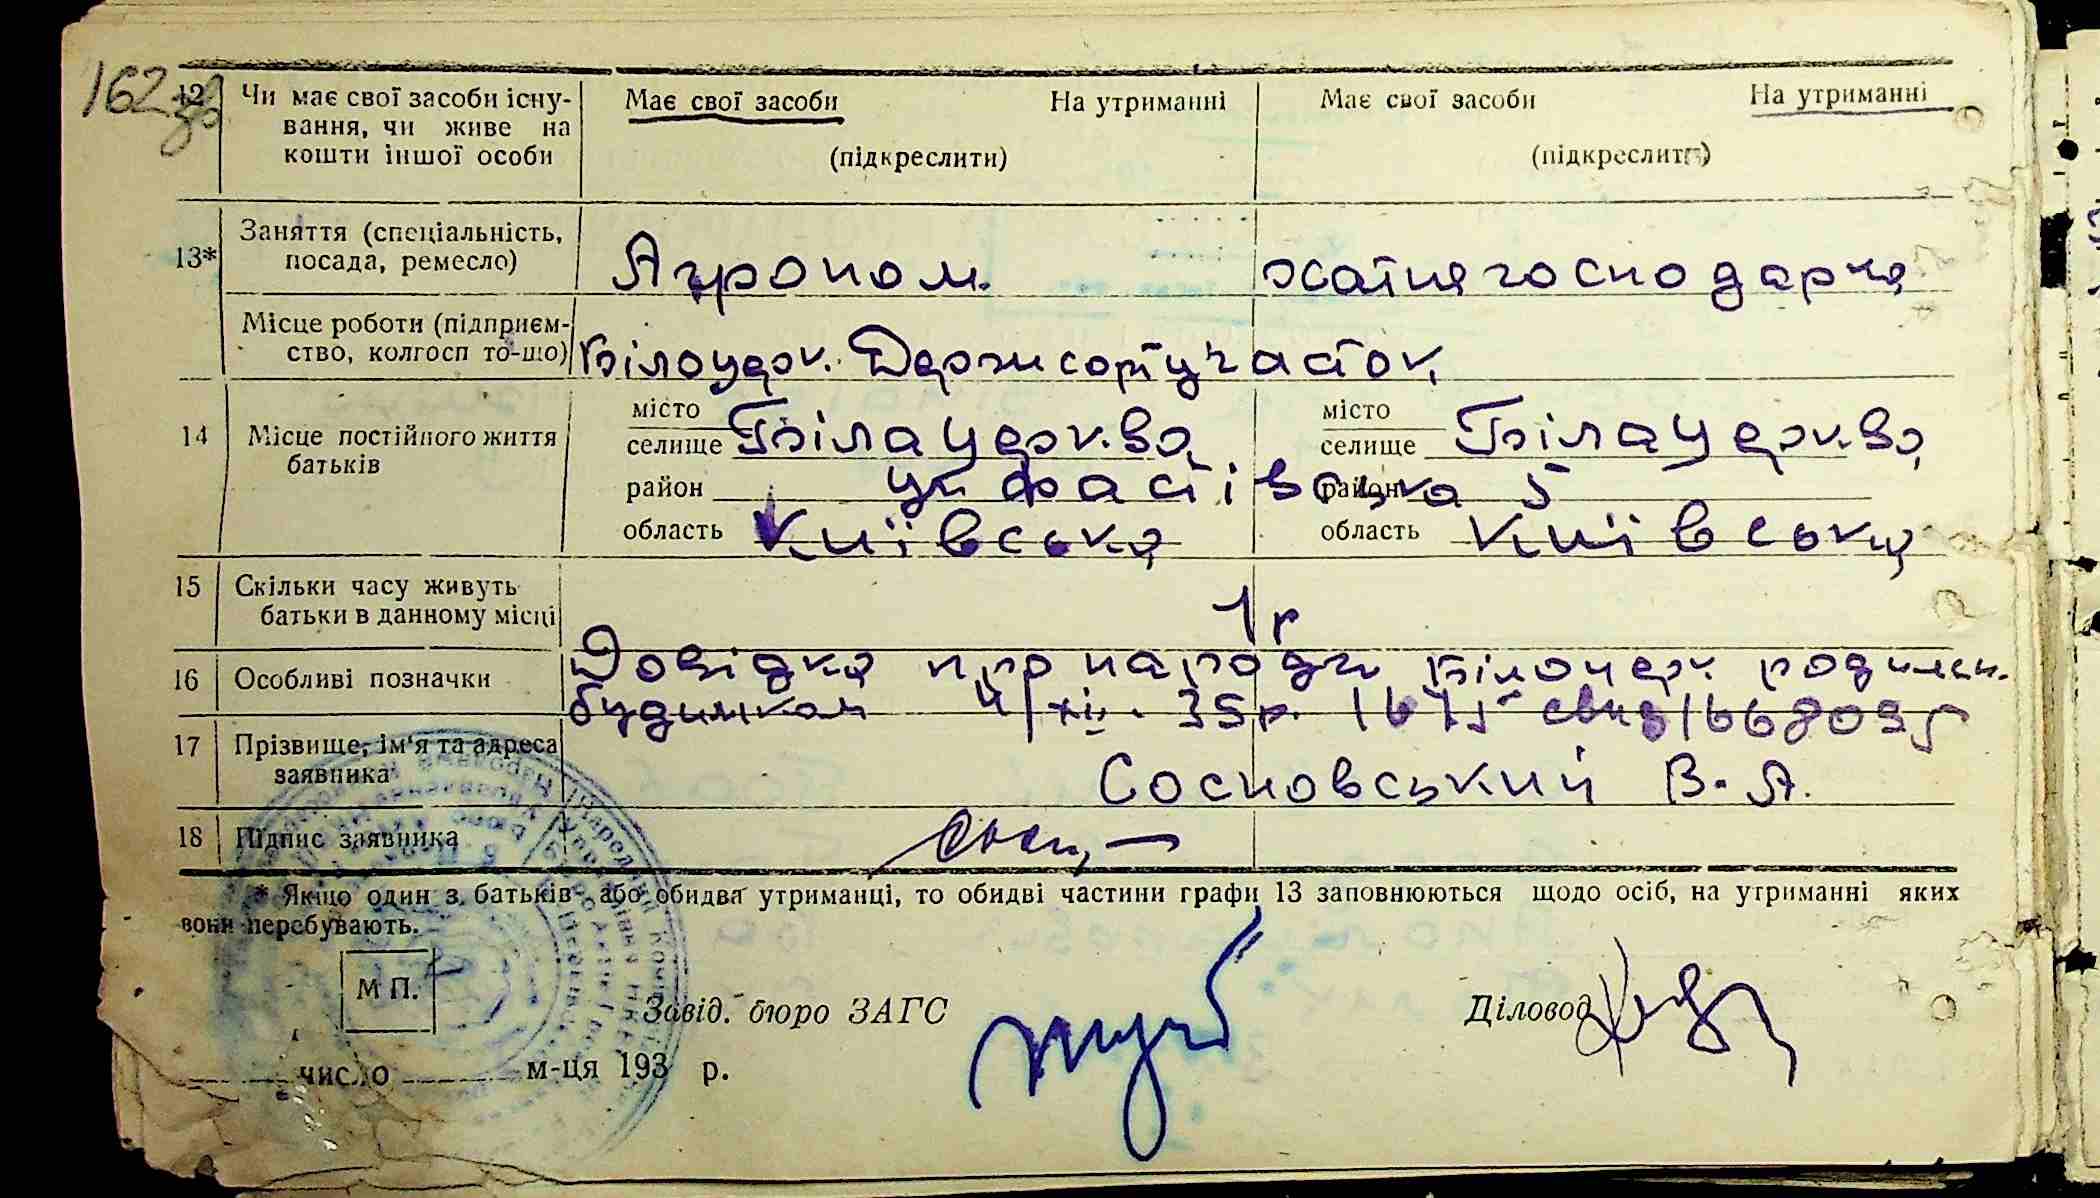 162 зв
12 Чи має свої засоби існу- Має свої засоби На утриманні Має свої засоби На утриманні
вання, чи живе на
кошти іншої особи (підкреслити) (підкреслити)
13* Заняття (спеціальність,
посада, ремесло) Агроном. хатня господарка
Місце роботи (підприєм-
ство, колгосп то-що) Білоцерк. Держсортучасток
14 Місце постійного життя
батьків
місто
селище Біла церква місто селище Біла церква
район район ул фастівська 5
область Київська область Київська
15 Скільки часу живуть
батьки в данному місці 1 р
16 Особливі позначки Довідка про народж Білоцерк. родильн.
будинком 4/хіі. 35р.
17 Прізвище, ім'я та адреса
заявника Сосновський В. А.
18 Підпис заявника
* Якщо один з батьків або обидва утриманці, то обидві частини графи 13 заповнюються щодо осіб, на утриманні яких
вони перебувають.
М П.
Завід. бюро ЗАГС Діловод
число м-ця 193 р.